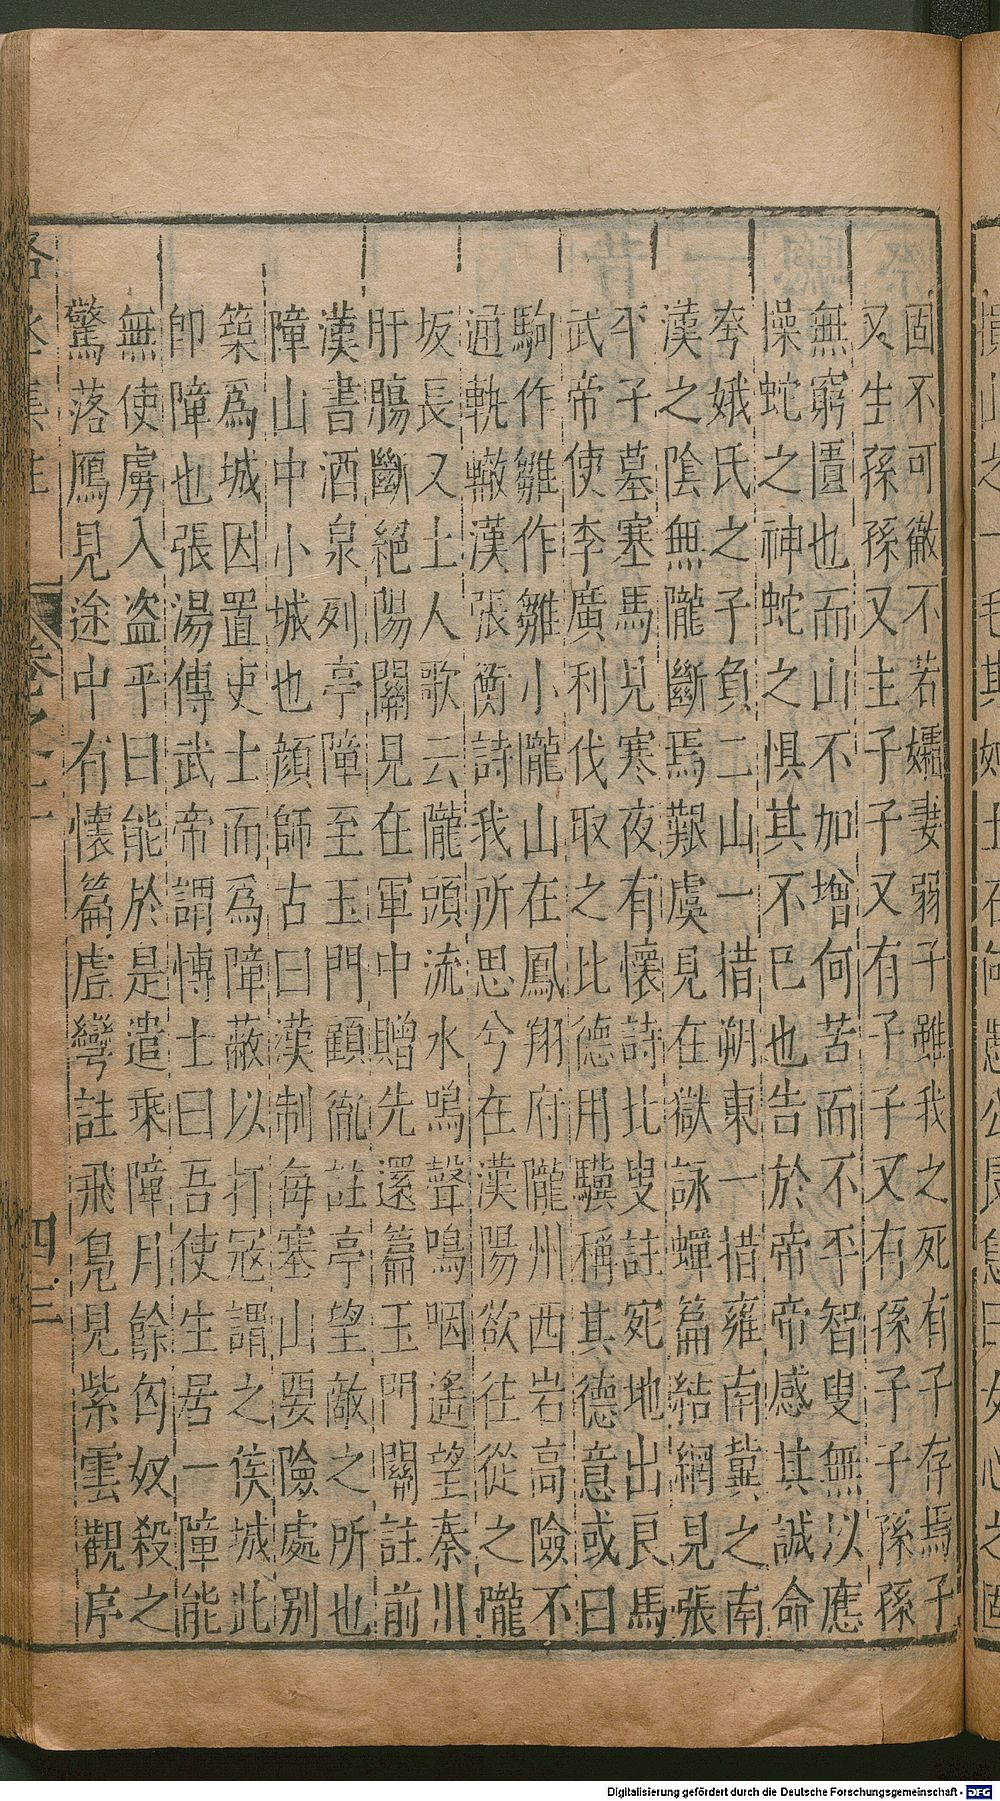 固不可徹不若孀妻弱子雖我之死有子存焉子
又生孫孫又生子子又有子子又有孫子子孫孫
無窮匱也而山不加增何苦而不平智叟無以應
懆蛇之神蛇之惧其不已也告於帝帝感其誠命
夸娥氏之子負二山一措朔東一措雍南冀之南
漢之陰無隴斷焉艱虞見在獄詠蟬篇結網見張
平子墓塞馬見寒夜有懷詩比叟註宛地出良馬
武帝使李廣利伐取之比德用驥稱其德意或曰
駒作雛作雛小隴山在鳳翔府隴州西岩高險不
通軌轍漢張衡詩我所思兮在漢陽欲往從之隴
坂長又土人歌云隴頭流水鳴聲鳴咽遙望秦川
肝腸斷絕陽關見在軍中贈先還篇玉門關註前
漢書酒泉列亭障至玉門顧胤註亭望敵之所也
障山中小城也顔師古曰漢制每塞山要險處別
築爲城因置吏士而爲障蔽以打冦謂之候城此
卽障也張湯傳武帝謂博士曰吾使生居一障能
無使虜入盗乎曰能於是遣乘障月餘匈奴殺之
驚落鴈見途中有懷篇虛彎註飛鳧見紫雲觀序
卷之
四三
Digitalisierung gefördert durch die Deutsche Forschungsgemeinschaft - DFG